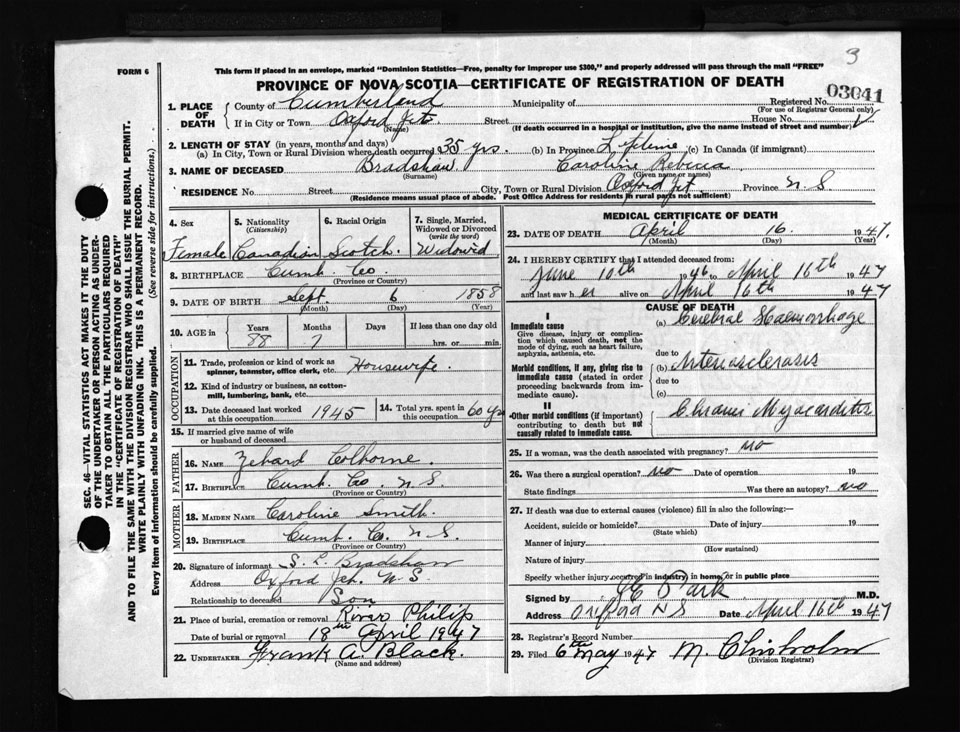 3
FORM 6
This form if placed in an envelope, marked "Dominion Statistics—Free, penalty for improper use $300," and properly addressed will pass through the mail "FREE"
PROVINCE OF NOVA SCOTIA—CERTIFICATE OF REGISTRATION OF DEATH
SEC. 46—VITAL STATISTICS ACT MAKES IT THE DUTY
OF THE UNDERTAKER OR PERSON ACTING AS UNDER-
TAKER TO OBTAIN ALL THE PARTICULARS REQUIRED
IN THE "CERTIFICATE OF REGISTRATION OF DEATH"
AND TO FILE THE SAME WITH THE DIVISION REGISTRAR WHO SHALL ISSUE THE BURIAL PERMIT.
WRITE PLAINLY WITH UNFADING INK. THIS IS A PERMANENT RECORD.
Every item of Information should be carefully supplied. (See reverse side for instructions.)
1. PLACE OF DEATH County of Cumberland Municipality of Registered No. 03041
(For use of Registrar General only)
If in City or Town Oxford Jct. Street House No.
(Name) (If death occurred in a hospital or institution, give the name instead of street and number)
2. LENGTH OF STAY (in years, months and days)
(a) In City, Town or Rural Division where death occurred 35 yrs. (b) In Province Lifetime (c) In Canada (if immigrant)
3. NAME OF DECEASED Bradshaw Caroline Rebecca
(Surname) (Given name or names)
RESIDENCE No. Street City, Town or Rural Division Oxford Jct. Province N.S.
(Residence means usual place of abode. Post Office Address for residents in rural parts not sufficient)
4. Sex
Female
5. Nationality
(Citizenship)
Canadian
6. Racial Origin
Scotch
7. Single, Married,
Widowed or Divorced
(write the word)
Widowed
8. BIRTHPLACE Cumb. Co.
(Province or Country)
9. DATE OF BIRTH Sept. 6 1858
(Month) (Day) (Year)
10. AGE in Years Months Days If less than one day old
88 7 hrs. or min.
OCCUPATION
11. Trade, profession or kind of work as
spinner, teamster, office clerk, etc. Housewife.
12. Kind of industry or business, as cotton-
mill, lumbering, bank, etc.
13. Date deceased last worked
at this occupation 1945
14. Total yrs. spent in
this occupation 60 yrs
15. If married give name of wife
or husband of deceased
FATHER
16. NAME Zebard Colborne.
17. BIRTHPLACE Cumb. Co. N.S.
(Province or Country)
MOTHER
18. MAIDEN NAME Caroline Smith.
19. BIRTHPLACE Cumb. Co. N.S.
(Province or Country)
20. Signature of informant S. L. Bradshaw
Address Oxford Jct. N.S.
Relationship to deceased Son
21. Place of burial, cremation or removal River Philip
Date of burial or removal 18th April 1947
22. UNDERTAKER Frank A. Black.
(Name and address)
MEDICAL CERTIFICATE OF DEATH
23. DATE OF DEATH April 16. 1947.
(Month) (Day) (Year)
24. I HEREBY CERTIFY that I attended deceased from:
June 10th 1946 to April 16th 1947
and last saw her alive on April 16th 1947
CAUSE OF DEATH
I
Immediate cause
Give disease, injury or complica-
tion which caused death, not the
mode of dying, such as heart failure,
asphyxia, asthenia, etc.
(a) Cerebral Haemorrhage
due to
Morbid conditions, if any, giving rise to
immediate cause (stated in order
proceeding backwards from im-
mediate cause).
(b) Arteriosclerosis
due to
(c)
II
Other morbid conditions (if important)
contributing to death but not
causally related to immediate cause.
Chronic Myocarditis
25. If a woman, was the death associated with pregnancy? No
26. Was there a surgical operation? No Date of operation 19
State findings Was there an autopsy? No
27. If death was due to external causes (violence) fill in also the following:—
Accident, suicide or homicide? Date of injury 19
(State which)
Manner of injury
(How sustained)
Nature of injury
Specify whether injury occurred in industry, in home, or in public place
Signed by Park M.D.
Address Oxford NS Date April 16th 1947
28. Registrar's Record Number
29. Filed 6th May 1947 M. Chisholm
(Division Registrar)